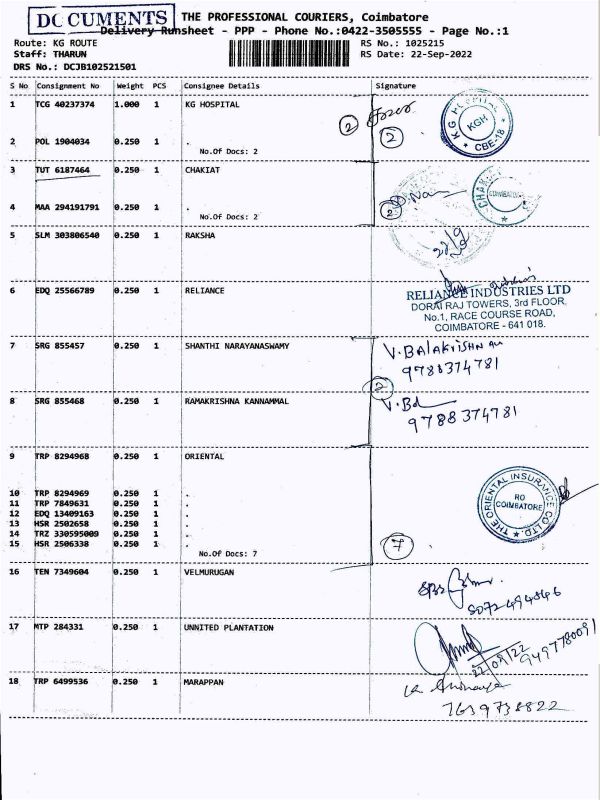 DOCUMENTS
THE PROFESSIONAL COURIERS, Coimbatore
Delivery Runsheet - PPP - Phone No.:0422-3505555 - Page No.:1
Route: KG ROUTE
RS No.: 1025215
Staff: THARUN
RS Date: 22-Sep-2022
DRS No.: DCJB102521501
S No Consignment No Weight PCS Consignee Details Signature
1 TCG 40237374 1.000 1 KG HOSPITAL
2
KG HOSPITAL
KGH
CBE-18
2 POL 1904034 0.250 1 .
2
No.Of Docs: 2
3 TUT 6187464 0.250 1 CHAKIAT
COIMBATORE
4 MAA 294191791 0.250 1 .
2
No.Of Docs: 2
5 SLM 303806540 0.250 1 RAKSHA
6 EDQ 25566789 0.250 1 RELIANCE
RELIANCE INDUSTRIES LTD
DORAI RAJ TOWERS, 3rd FLOOR,
No.1, RACE COURSE ROAD,
COIMBATORE - 641 018.
7 SRG 855457 0.250 1 SHANTHI NARAYANASWAMY
V.BALAKRISHNAN
9788374781
2
8 SRG 855468 0.250 1 RAMAKRISHNA KANNAMMAL
9788374781
9 TRP 8294968 0.250 1 ORIENTAL
THE ORIENTAL INSURANCE CO LTD.
RO
COIMBATORE
10 TRP 8294969 0.250 1 .
11 TRP 7849631 0.250 1 .
12 EDQ 13409163 0.250 1 .
13 HSR 2502658 0.250 1 .
14 TRZ 330595009 0.250 1 .
15 HSR 2506338 0.250 1 .
7
No.Of Docs: 7
16 TEN 7349604 0.250 1 VELMURUGAN
8072494846
17 MTP 284331 0.250 1 UNNITED PLANTATION
22/09/22
9497780091
18 TRP 6499536 0.250 1 MARAPPAN
7639738822